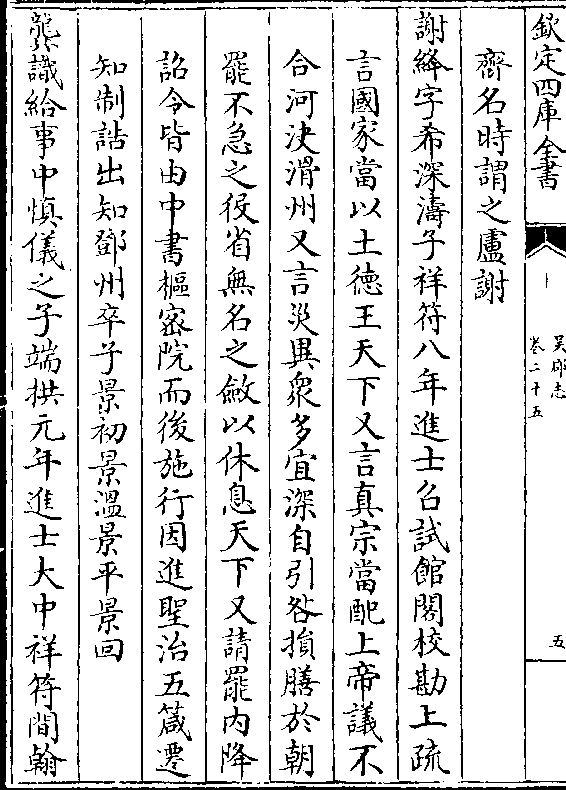 欽定四庫全書
吳郡志
卷二十五
五
齊名時謂之盧謝
謝絳字希深濤子祥符八年進士召試館閣校勘上疏
言國家當以土德王天下又言真宗當配上帝議不
合河決滑州又言災異衆多宜深自引咎損膳於朝
罷不急之役省無名之斂以休息天下又請罷内降
詔令皆由中書樞宻院而後施行因進聖治五箴遷
知制誥出知鄧州卒子景初景溫景平景回
龔識給事中慎儀之子端拱元年進士大中祥符間翰